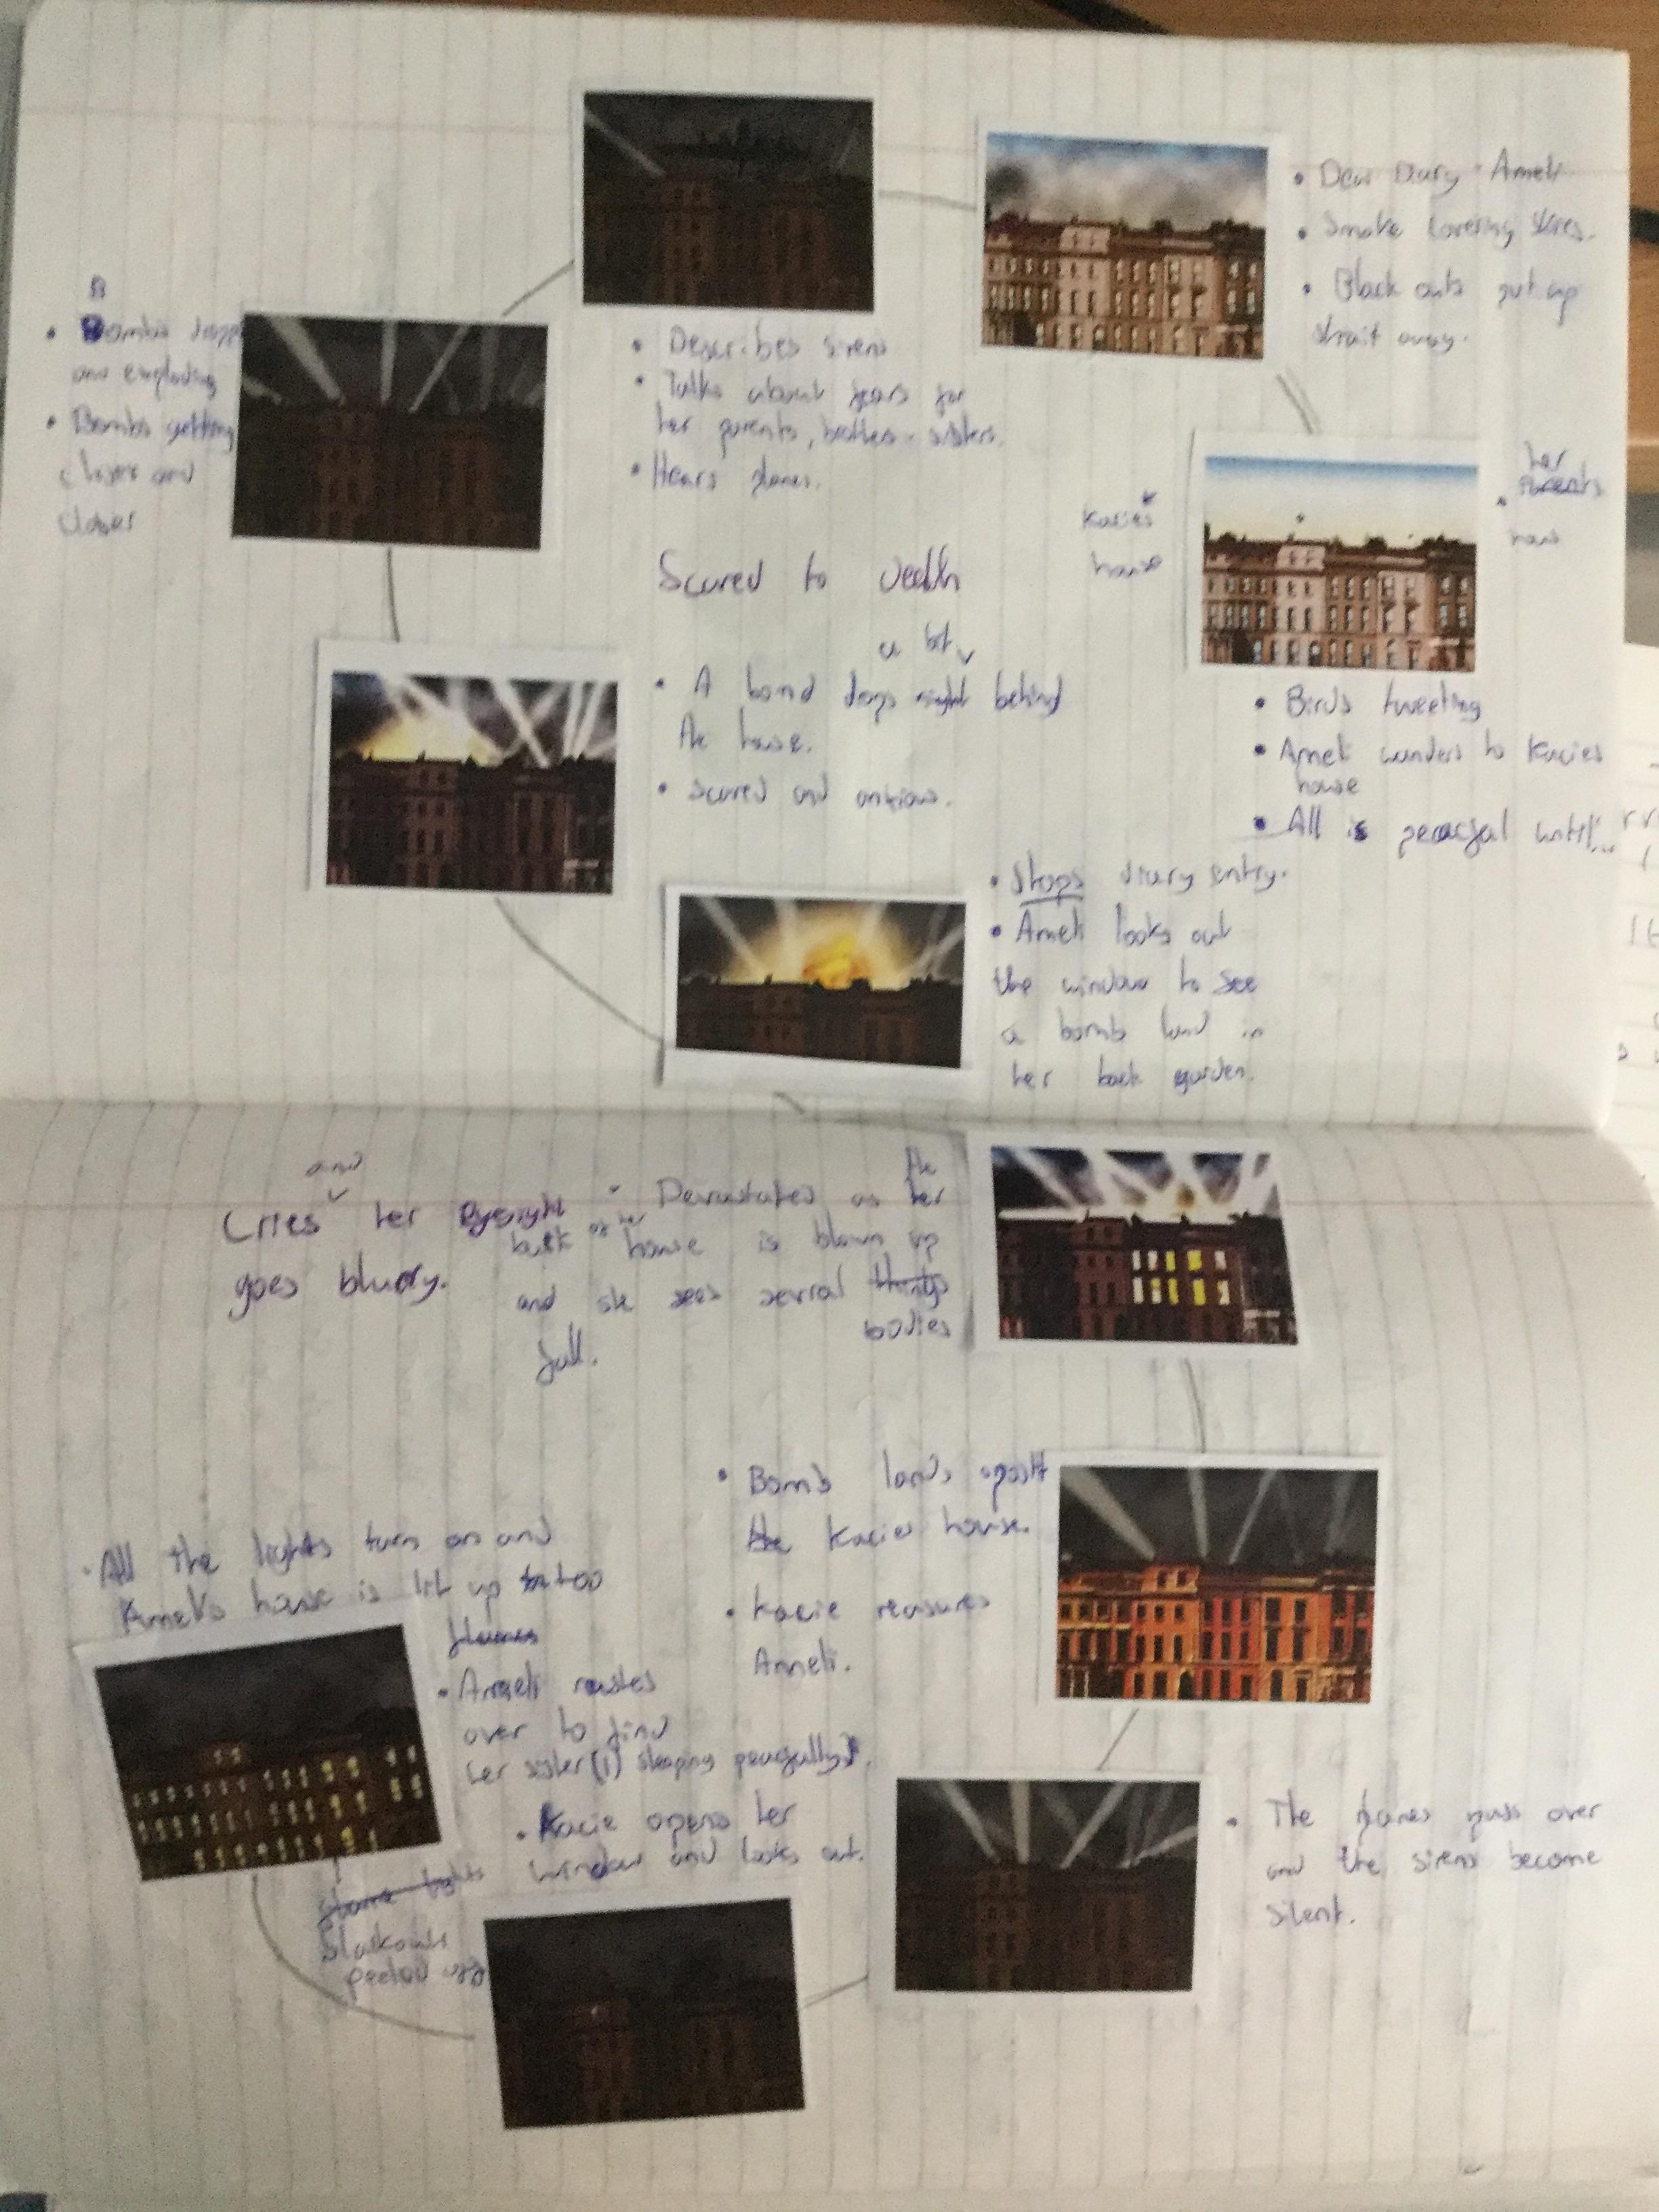 • Dear Diary - Ameli
• Smoke covering skies.
• Black outs put up
strait away.
B
• Bombs
and exploding
• Bombs getting
closer and
closer
• Describes sirens
• Talks about fears for
her parents, brothers - sisters.
• Hears planes.
her
parents
Kacies
house
Scared to death
a bit
• A bomd drops right behind
the house.
• Scared and
• Birds tweeting
• Ameli wanders to Kacies
house
• All is peacful until...
• Stops diary entry.
• Ameli looks out
the window to see
a bomb land in
her back garden.
and
Cries her Eyesight
goes blurry.
• Devastates as the her
back of her house is blown up
and she sees sevral things
bodies
fall.
• Bomb lands
the Kacies house.
• Kacie
Anneli.
• All the lights turn on and
house is lit up too
flames
• Anneli
over to find
her sister (1) sleeping
• Kacie opens her
window and looks out.
lights
• The planes pass over
and the sirens become
silent.